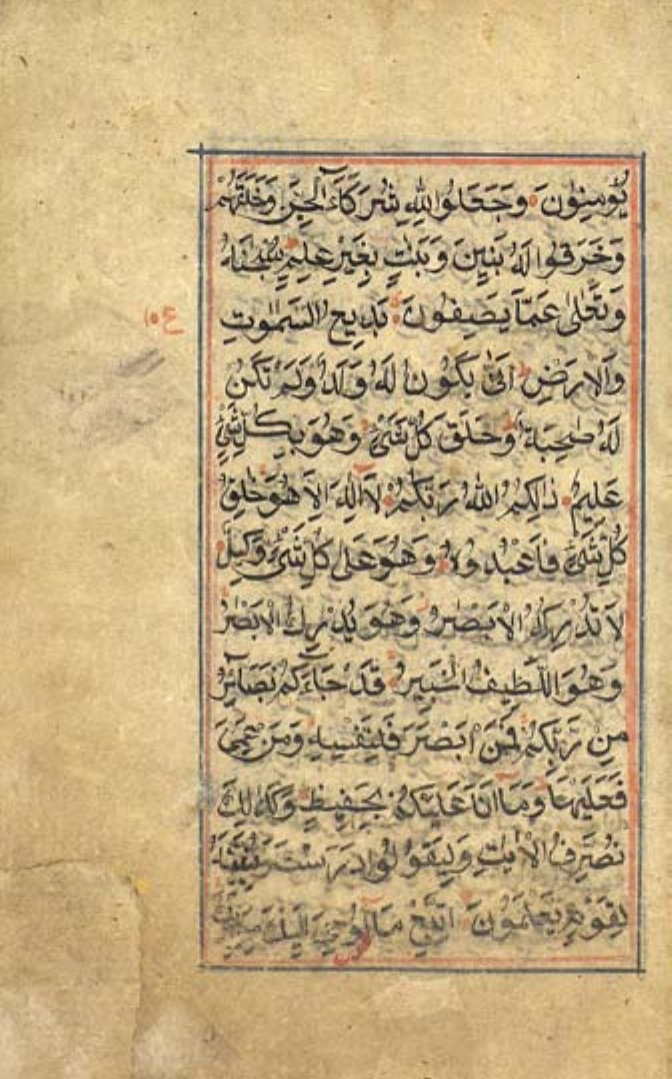 يُؤْمِنُونَ وَجَعَلُوا لِلّٰهِ شُرَكَآءَ الْجِنَّ وَخَلَقَهُمْ
وَخَرَقُوا لَهُ بَنِينَ وَبَنٰتٍ بِغَيْرِ عِلْمٍ سُبْحٰنَهُ
وَتَعٰلٰى عَمَّا يَصِفُونَ بَدِيعُ السَّمٰوٰتِ
ع ١٥
وَالْاَرْضِ اَنّٰى يَكُونُ لَهُ وَلَدٌ وَلَمْ تَكُنْ
لَهُ صٰحِبَةٌ وَخَلَقَ كُلَّ شَيْءٍ وَهُوَ بِكُلِّ شَيْءٍ
عَلِيمٌ ذٰلِكُمُ اللّٰهُ رَبُّكُمْ لَآ اِلٰهَ اِلَّا هُوَ خٰلِقُ
كُلِّ شَيْءٍ فَاعْبُدُوهُ وَهُوَ عَلٰى كُلِّ شَيْءٍ وَكِيلٌ
لَا تُدْرِكُهُ الْاَبْصٰرُ وَهُوَ يُدْرِكُ الْاَبْصٰرَ
وَهُوَ اللَّطِيفُ الْخَبِيرُ قَدْ جَآءَكُمْ بَصَآئِرُ
مِنْ رَبِّكُمْ فَمَنْ اَبْصَرَ فَلِنَفْسِهِ وَمَنْ عَمِيَ
فَعَلَيْهَا وَمَآ اَنَا عَلَيْكُمْ بِحَفِيظٍ وَكَذٰلِكَ
نُصَرِّفُ الْاٰيٰتِ وَلِيَقُولُوا دَرَسْتَ وَلِنُبَيِّنَهُ
لِقَوْمٍ يَعْلَمُونَ اِتَّبِعْ مَآ اُوحِيَ اِلَيْكَ مِنْ رَبِّكَ